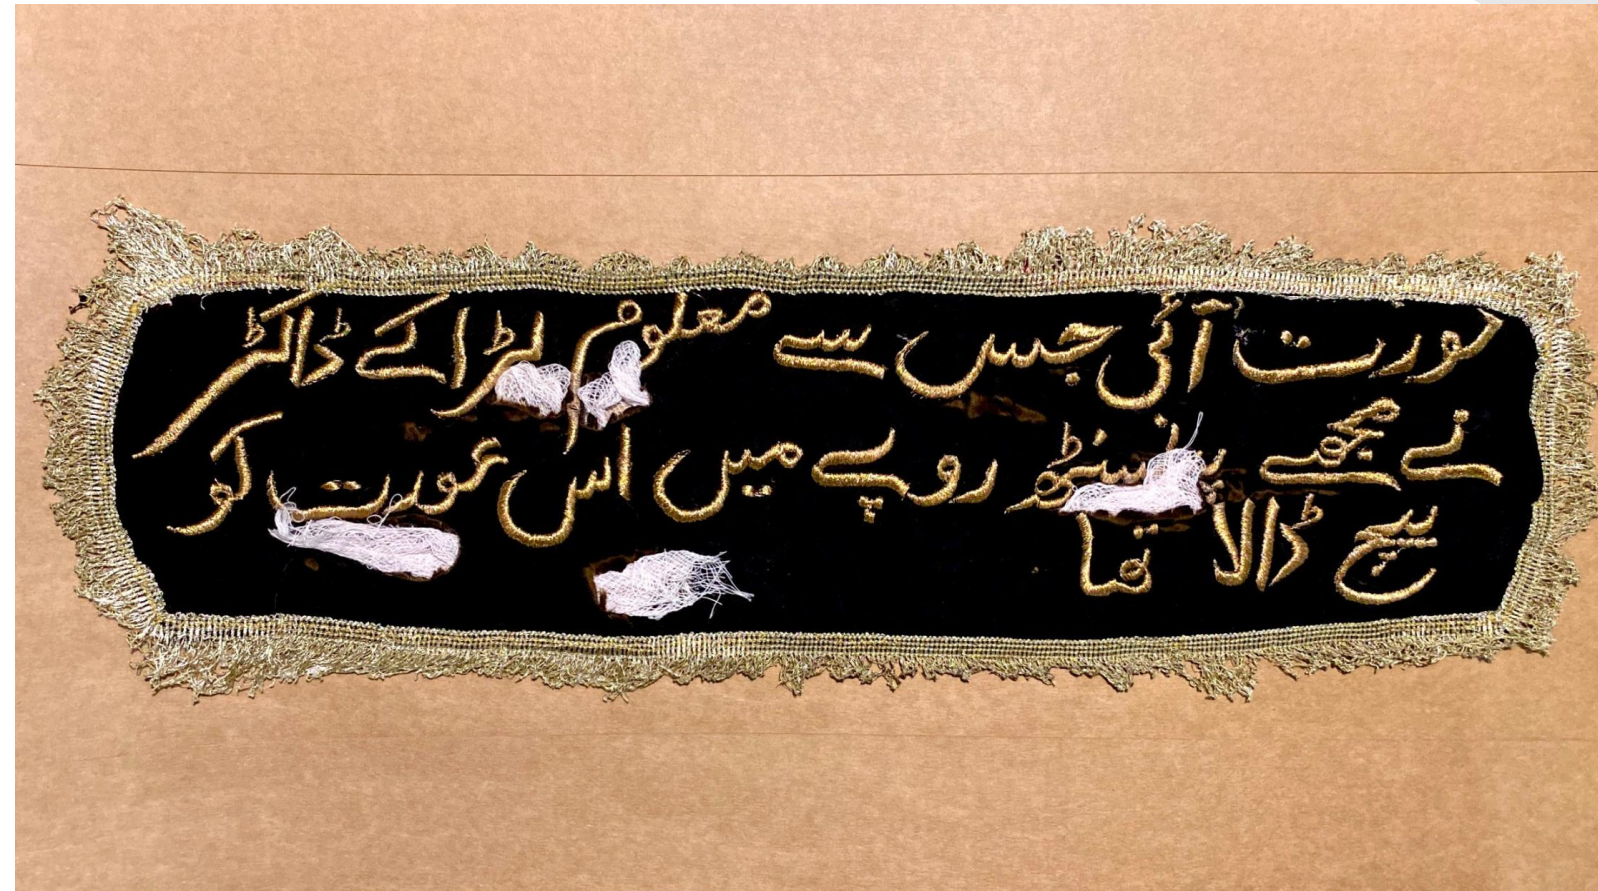 عورت آئی جس سے معلوم پڑا کے ڈاکٹر
نے مجھے روپے میں اس عورت کو
بیچ ڈالا تھا